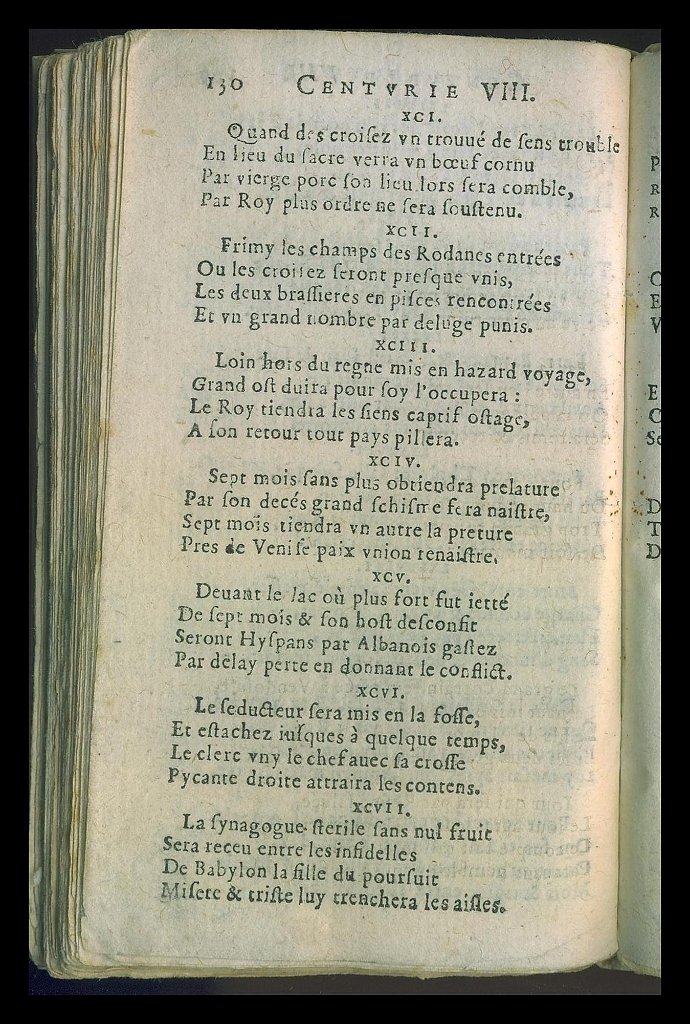 130 CENTVRIE VIII.
XCI.
Quand des croiſez vn trouué de ſens trouble
En lieu du ſacre verra vn bœuf cornu
Par vierge porc ſon lieu lors ſera comble,
Par Roy plus ordre ne ſera ſouſtenu.
XCII.
Frimy les champs des Rodanes entrées
Ou les croiſez ſeront preſque vnis,
Les deux braſſieres en piſces rencontrées
Et vn grand nombre par deluge punis.
XCIII.
Loin hors du regne mis en hazard voyage,
Grand oſt duira pour ſoy l'occupera :
Le Roy tiendra les ſiens captif oſtage,
A ſon retour tout pays pillera.
XCIV.
Sept mois ſans plus obtiendra prelature
Par ſon decés grand ſchiſme fera naiſtre,
Sept mois tiendra vn autre la preture
Pres de Veniſe paix vnion renaiſtre.
XCV.
Deuant le lac où plus fort fut ietté
De ſept mois & ſon hoſt deſconfit
Seront Hyſpans par Albanois gaſtez
Par delay perte en donnant le conflict.
XCVI.
Le ſeducteur ſera mis en la foſſe,
Et eſtachez iuſques à quelque temps,
Le clerc vny le chef auec ſa croſſe
Pycante droite attraira les contens.
XCVII.
La ſynagogue ſterile ſans nul fruit
Sera receu entre les infidelles
De Babylon la fille du pourſuit
Miſere & triſte luy trenchera les aiſles.
P
R
R
C
E
V
E
C
Se
D
T
D